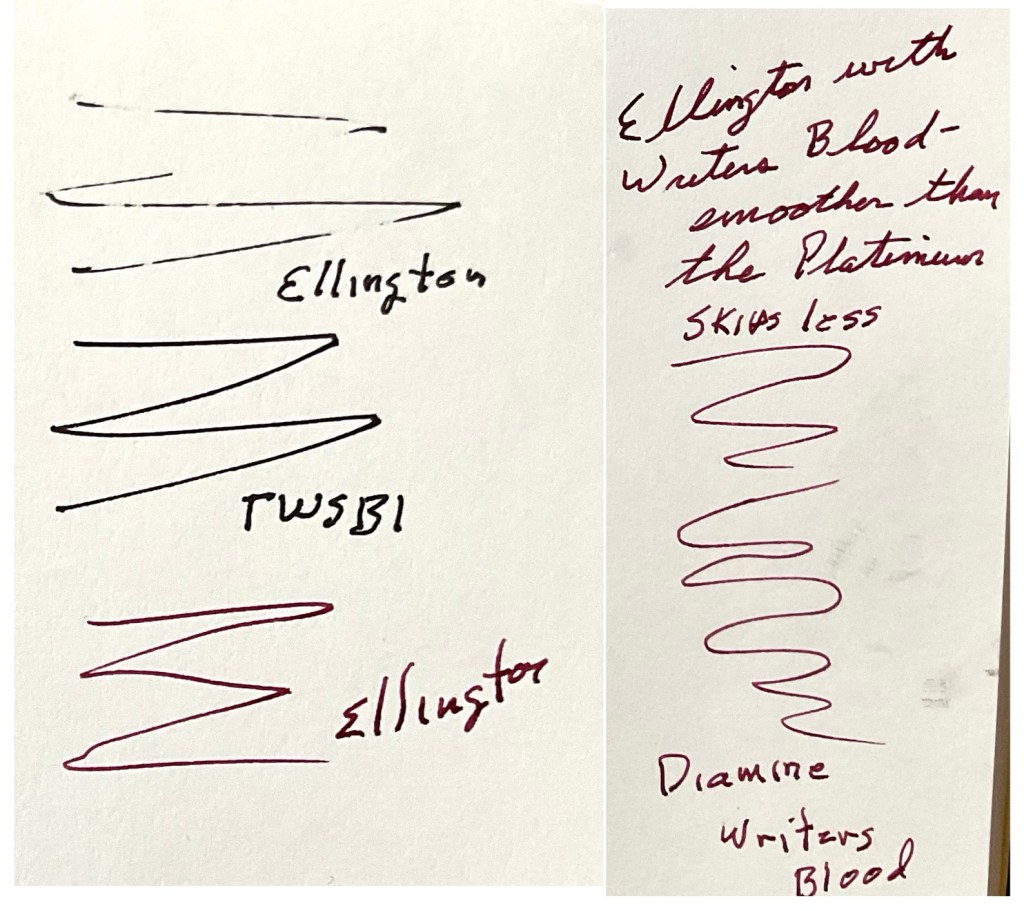 Ellington
TWSBI
Ellington
Ellington with
Writers Blood-
smoother than
the Platinium
SKIPS less
Diamine
Writers
Blood